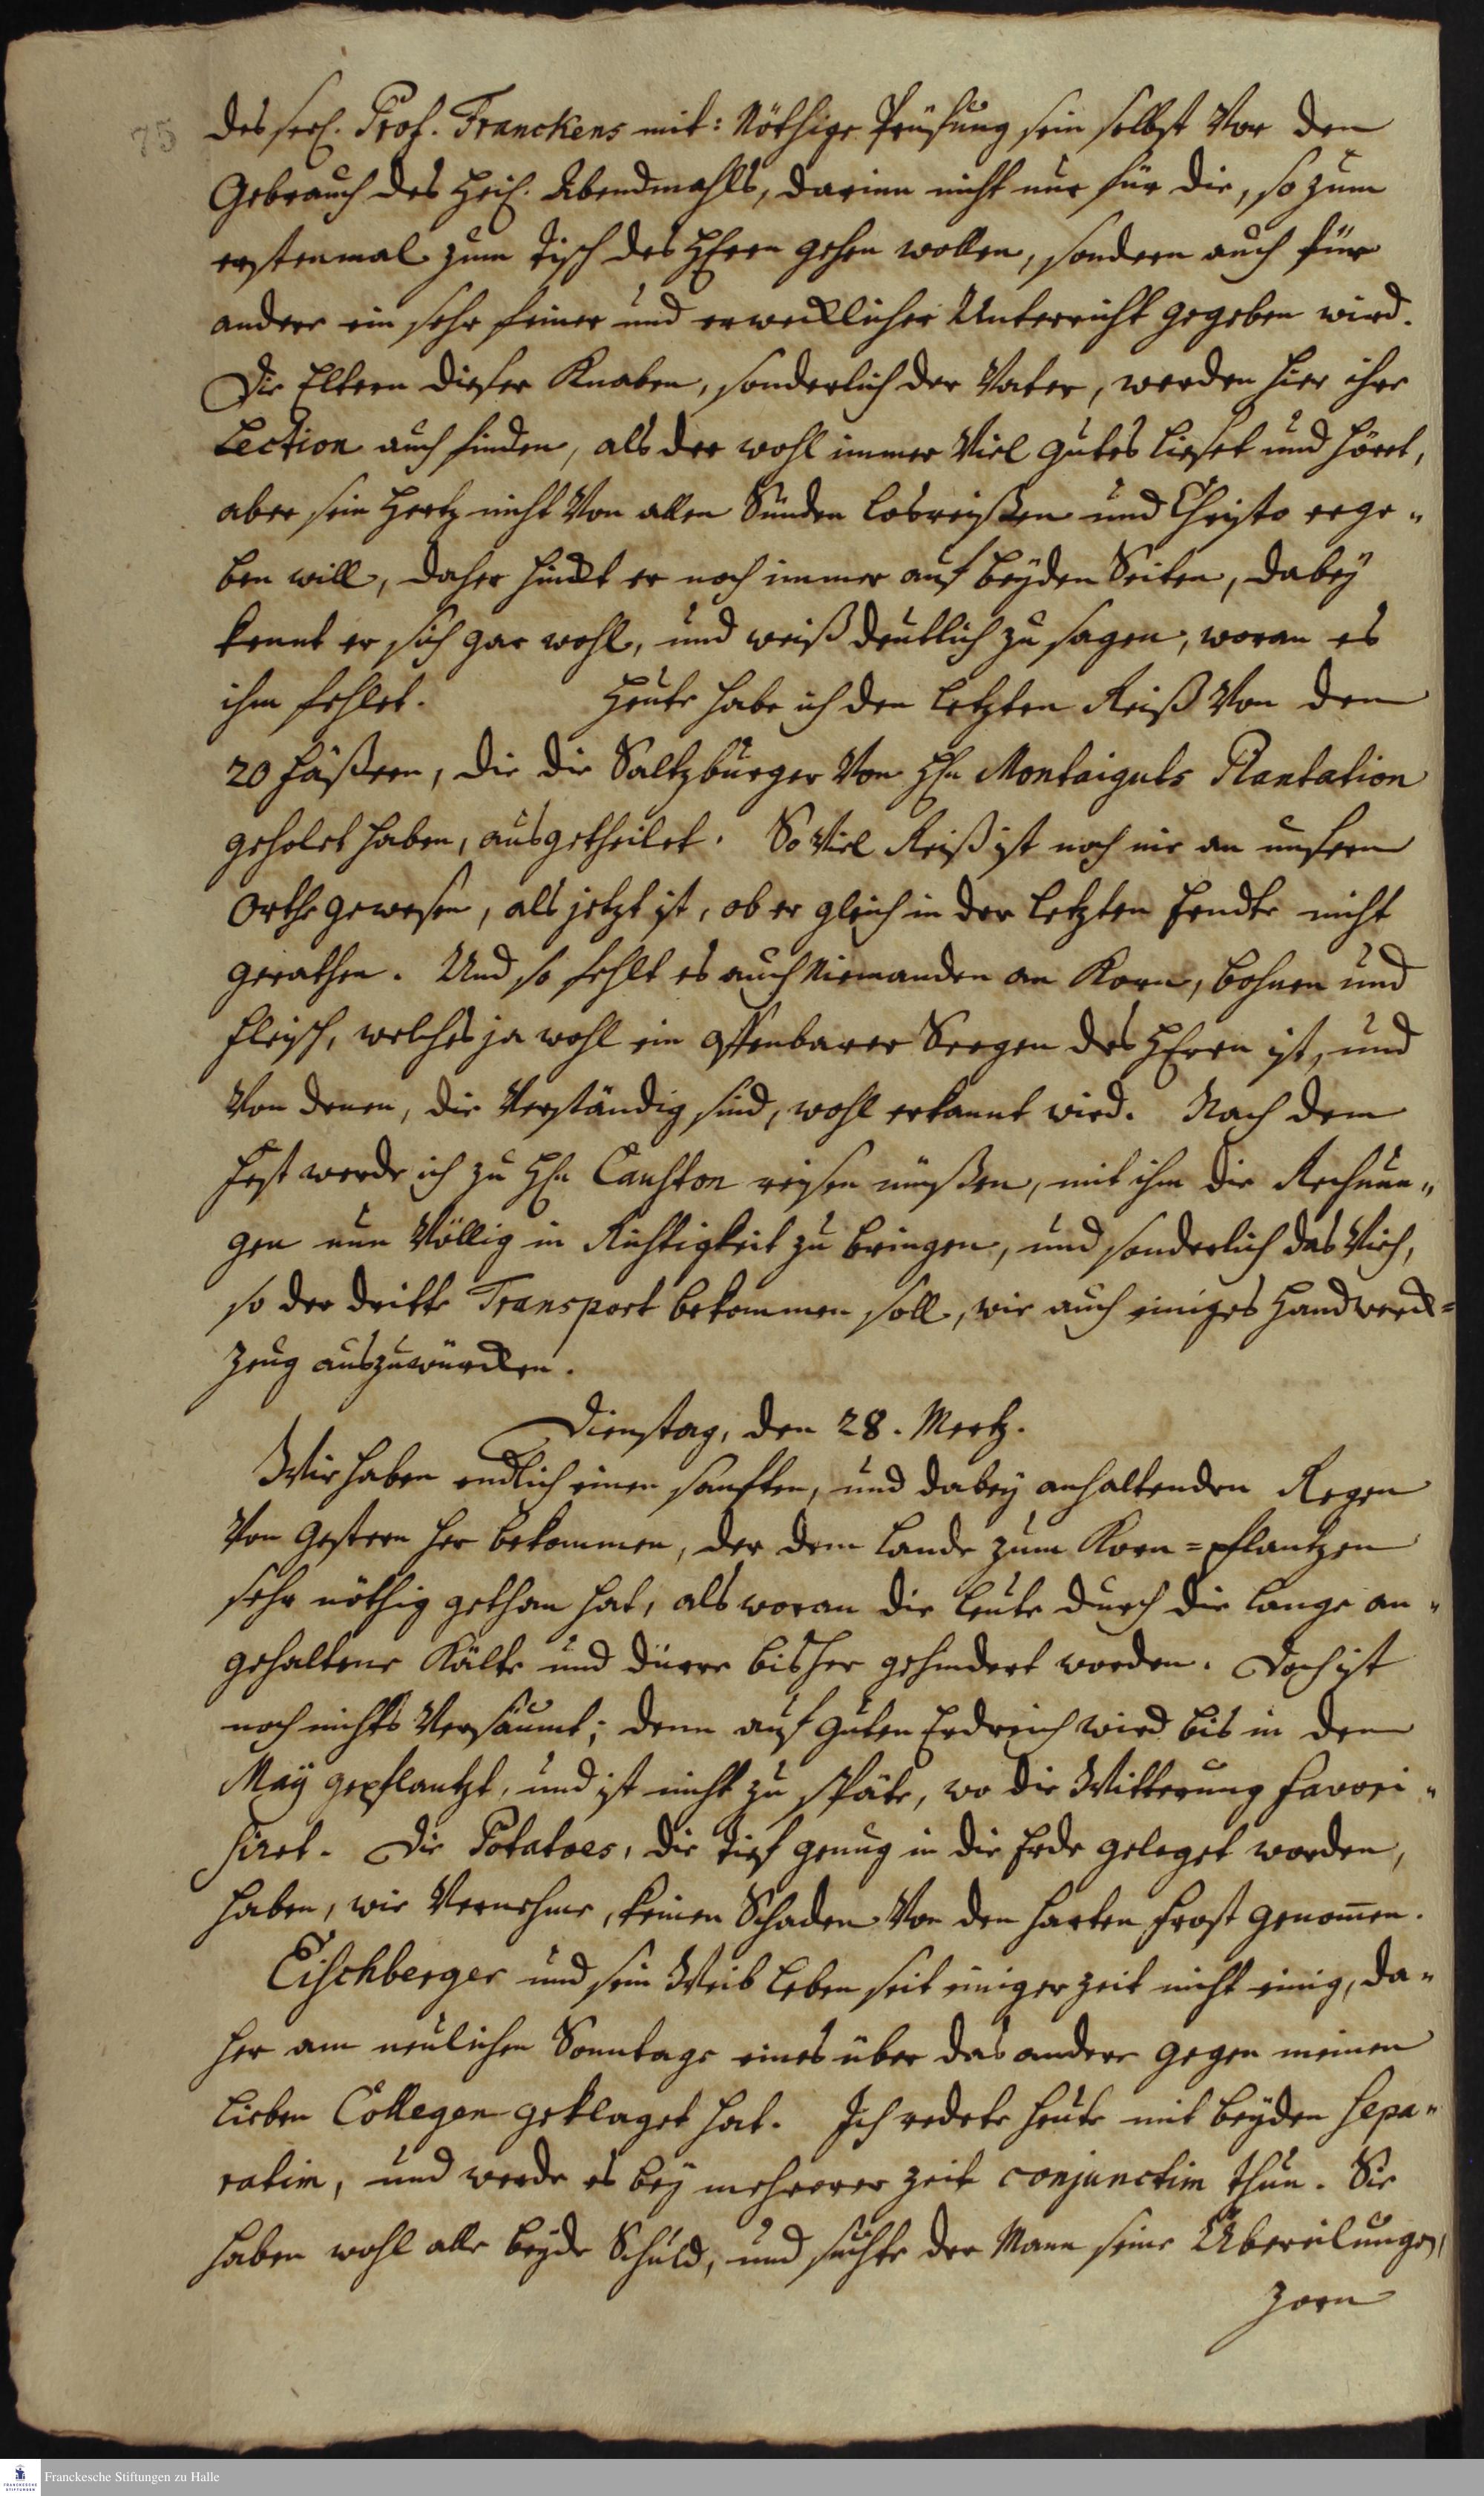 75
des seel. Prof. Franckens mit: Nöthige Prüfung sein selbst vor dem
Gebrauch des Heil. Abendmahls, darinn nicht nur für die, so zum
erstenmal zum Tisch des HErrn gehen wollen, sondern auch für
andere ein sehr feiner und erwecklicher Unterricht gegeben wird.
Die Eltern dieser Knaben, sonderlich der Vater, werden hier ihre
Lection auch finden, als der wohl immer viel gutes lieset und höret,
aber sein Hertz nicht von allen Sünden losreißen und Christo erge„
ben will, daher hinckt er noch immer auf beyden Seiten, dabey
kennt er sich gar wohl, und weiß deutlich zu sagen, woran es
ihm fehlet. Heute habe ich den letzten Reiß von den
20 Fäßern, die die Saltzburger von Hn Montaiguts Plantation
geholet haben, ausgetheilet. So viel Reiß ist noch nie an unserm
Orthe gewesen, als jetzt ist, ob er gleich in der letzten Erndte nicht
gerathen. Und so fehlt es auch niemanden an Korn, Bohnen und
Fleisch, welches ja wohl ein offenbarer Seegen des HErrn ist, und
von denen, die verständig sind, wohl erkannt wird. Nach dem
Fest werde ich zu Hn Causton reisen müßen, mit ihm die Rechnun„
gen nun völlig in Richtigkeit zu bringen, und sonderlich das Vieh,
so der dritte Transport bekommen soll, wie auch einiges Handwerck=
zeug auszuwürcken.
Dienstag, den 28. Mertz.
Wir haben endlich einen sanften, und dabey anhaltenden Regen
von gestern her bekommen, der dem Lande zum Korn=pflantzen
sehr nöthig gethan hat, als woran die Leute durch die lange an„
gehaltene Kälte und dürre bisher gehindert worden. Doch ist
noch nichts versäumt; denn auf guten Erdreich wird bis in den
May gepflantzt, und ist nicht zu späte, wo die Witterung favori„
siret. Die Potatoes, die tief genug in die Erde geleget worden,
haben, wie vernehme, keinen Schaden von den harten Frost genom̅en.
Eischberger und sein Weib leben seit einiger Zeit nicht einig, da„
her am neulichen Sonntage eines über das andere gegen meinen
lieben Collegen geklaget hat. Ich redete heute mit beyden sepa„
ratim, und werde es bey mehrerer Zeit conjunctim thun. Sie
haben wohl alle beyde Schuld, und suchte der Mann seine Übereilungen,
Zorn
Franckesche Stiftungen zu Halle
FRANCKESCHE STIFTUNGEN